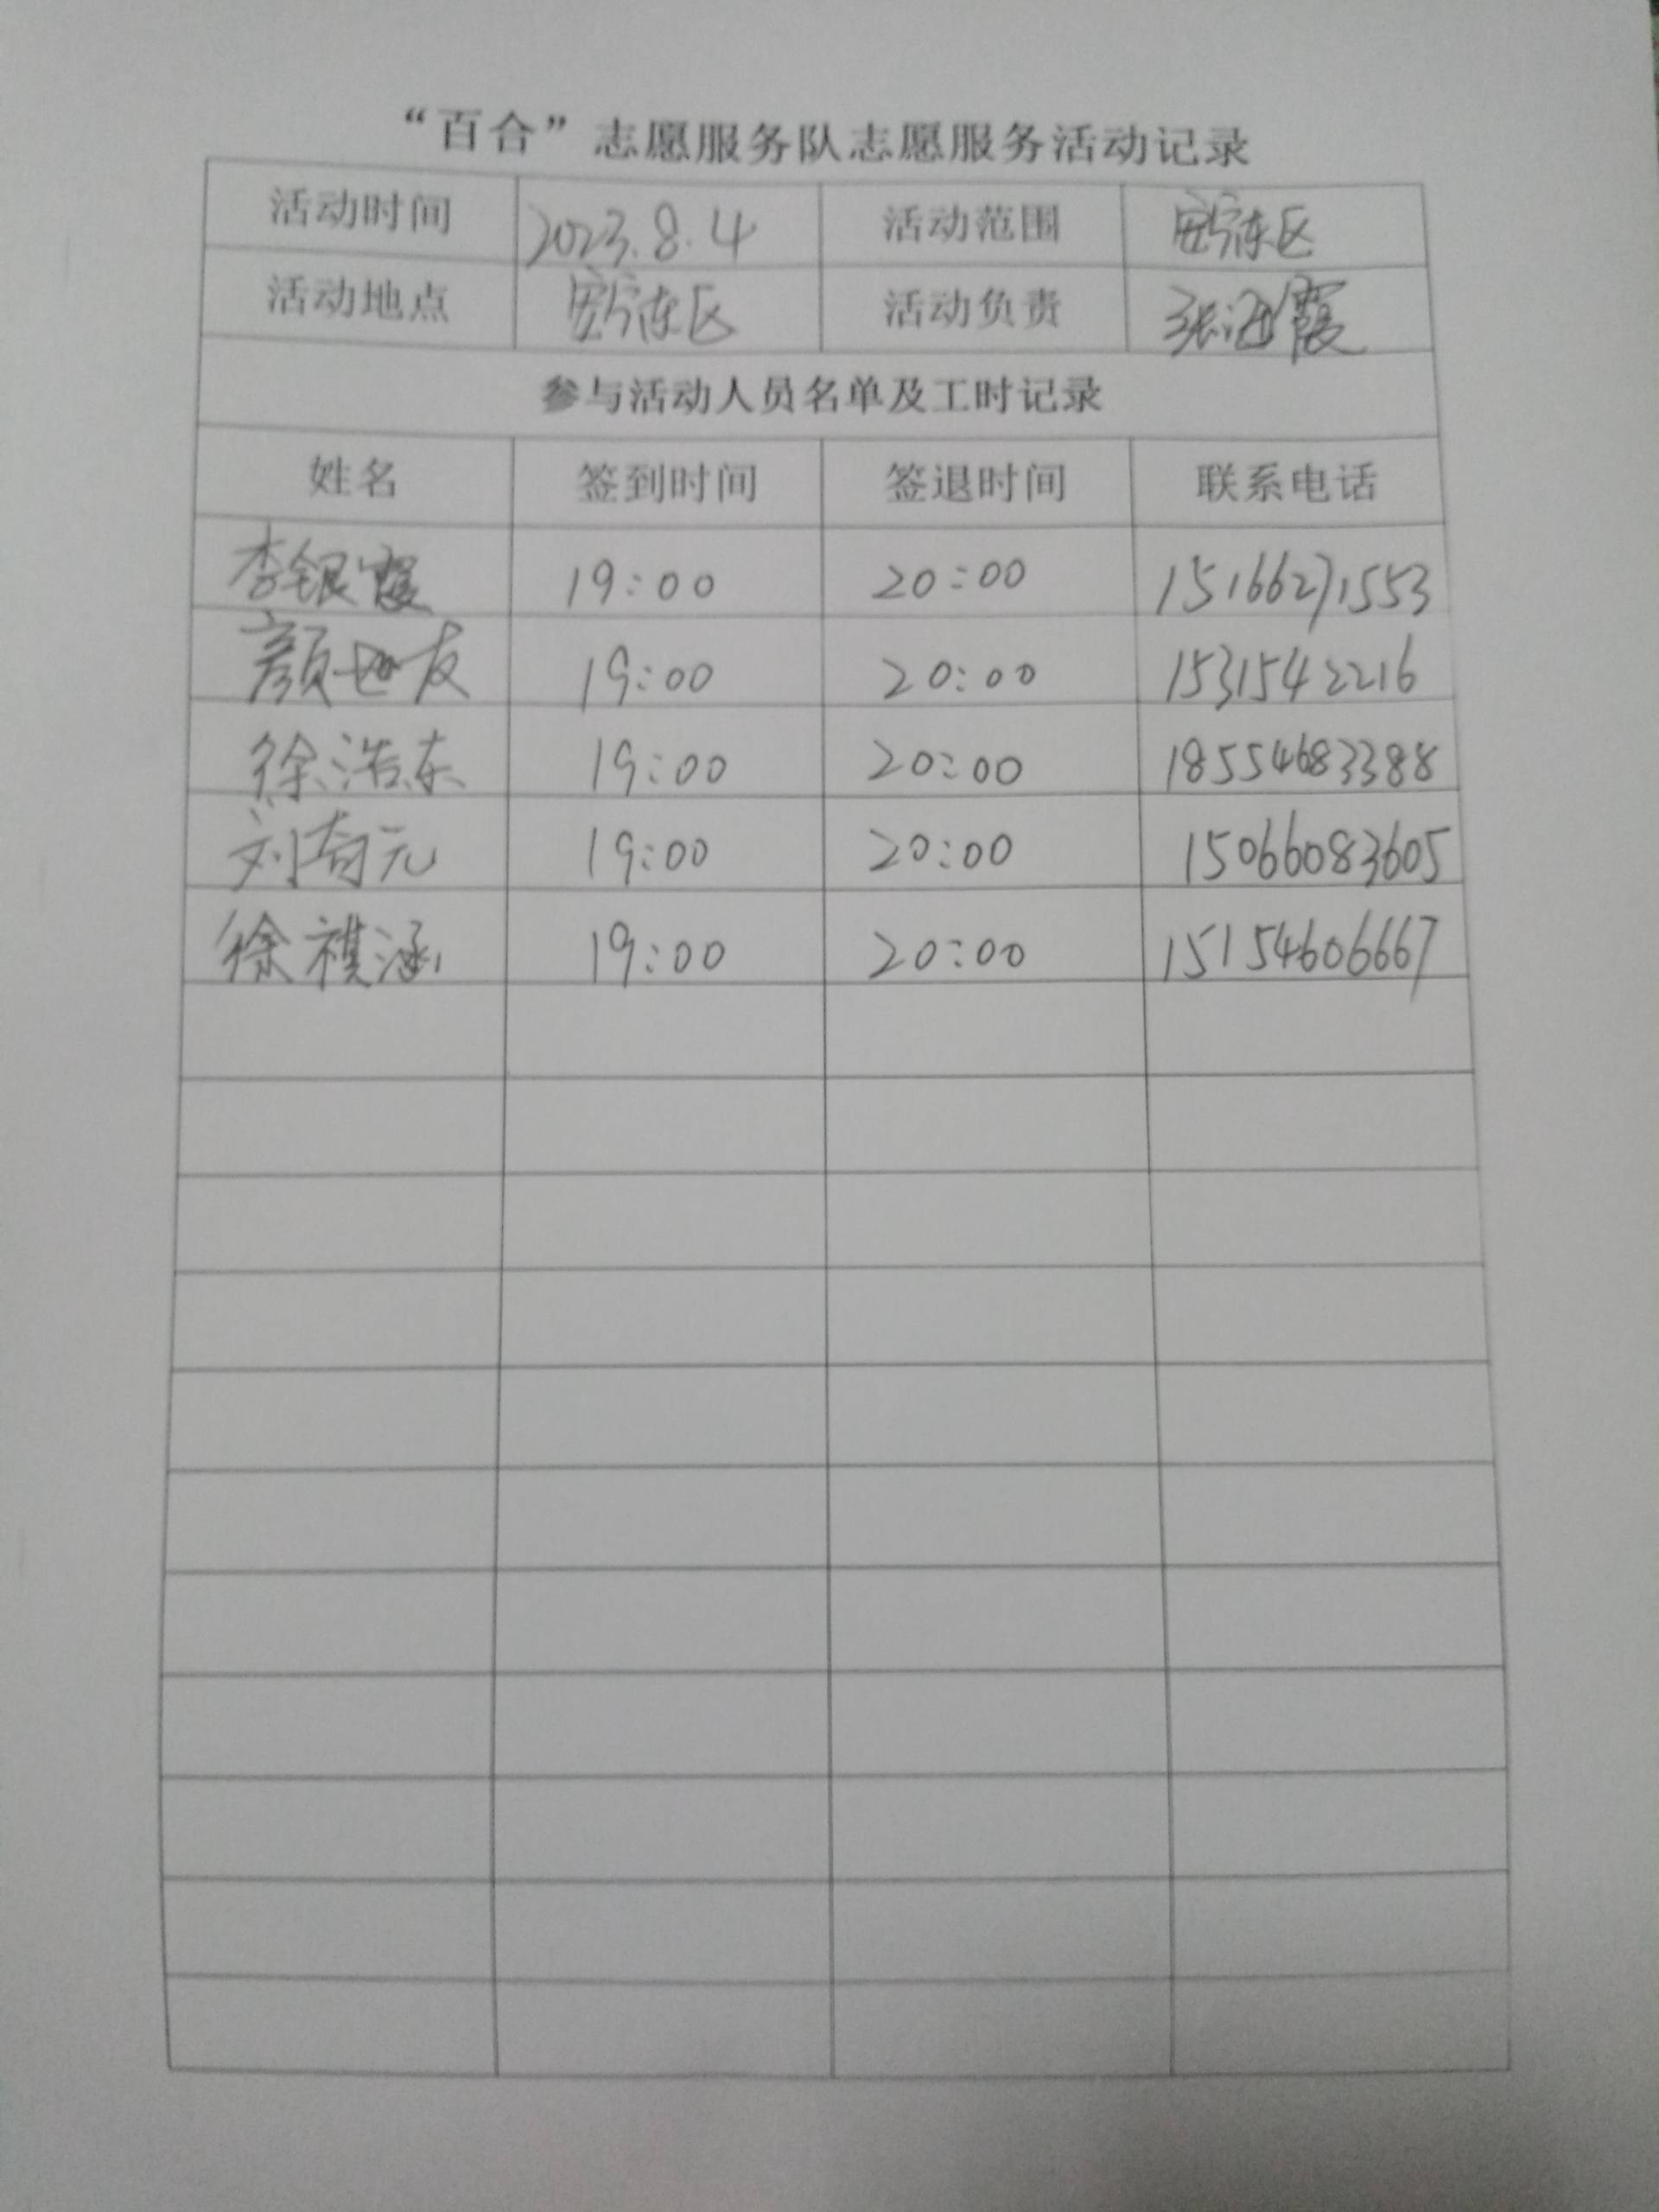 “百合”志愿服务队志愿服务活动记录
活动时间 2023.8.4 活动范围 安宁东区
活动地点 安宁东区 活动负责 张海霞
参与活动人员名单及工时记录
姓名 签到时间 签退时间 联系电话
李银霞 19:00 20:00 15166271553
颜世友 19:00 20:00 1531542216
徐浩东 19:00 20:00 18554683388
刘奇元 19:00 20:00 15066083605
徐祺涵 19:00 20:00 15154606667